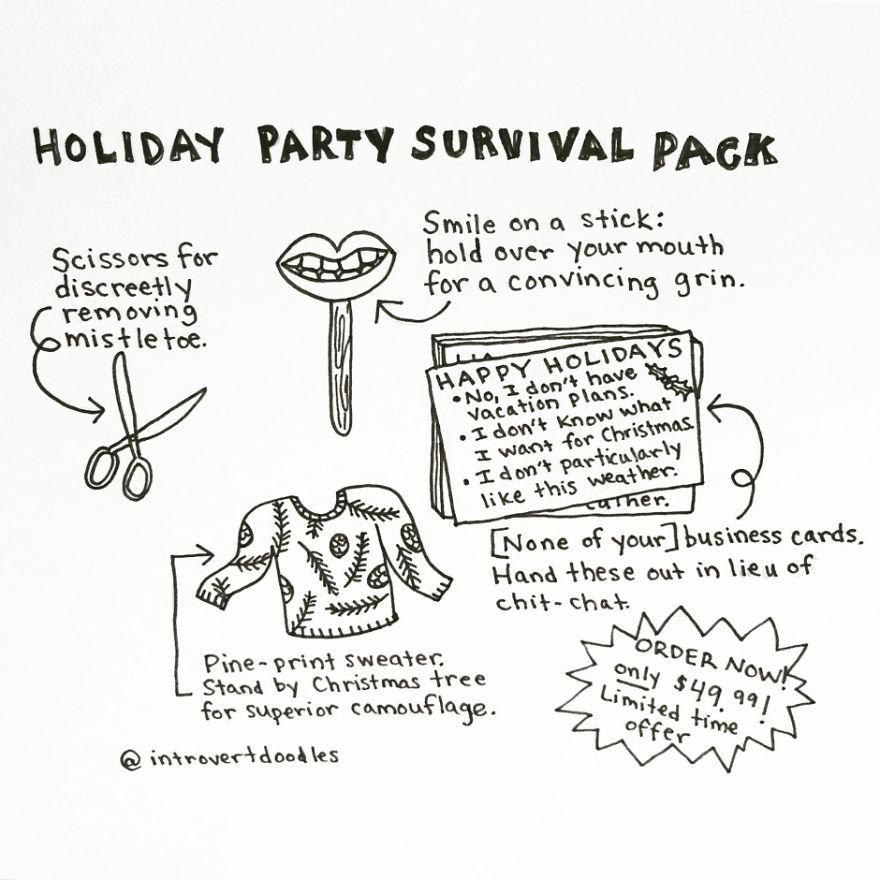 HOLIDAY PARTY SURVIVAL PACK
Smile on a stick:
hold over your mouth
for a convincing grin.
Scissors for
discreetly
removing
mistletoe.
HAPPY HOLIDAYS
• No, I don't have
vacation plans.
• I don't know what
I want for Christmas.
• I don't particularly
like this weather.
[None of your] business cards.
Hand these out in lieu of
chit-chat.
Pine-print sweater.
Stand by Christmas tree
for superior camouflage.
ORDER NOW!
only $49.99!
Limited time
offer
@introvertdoodles